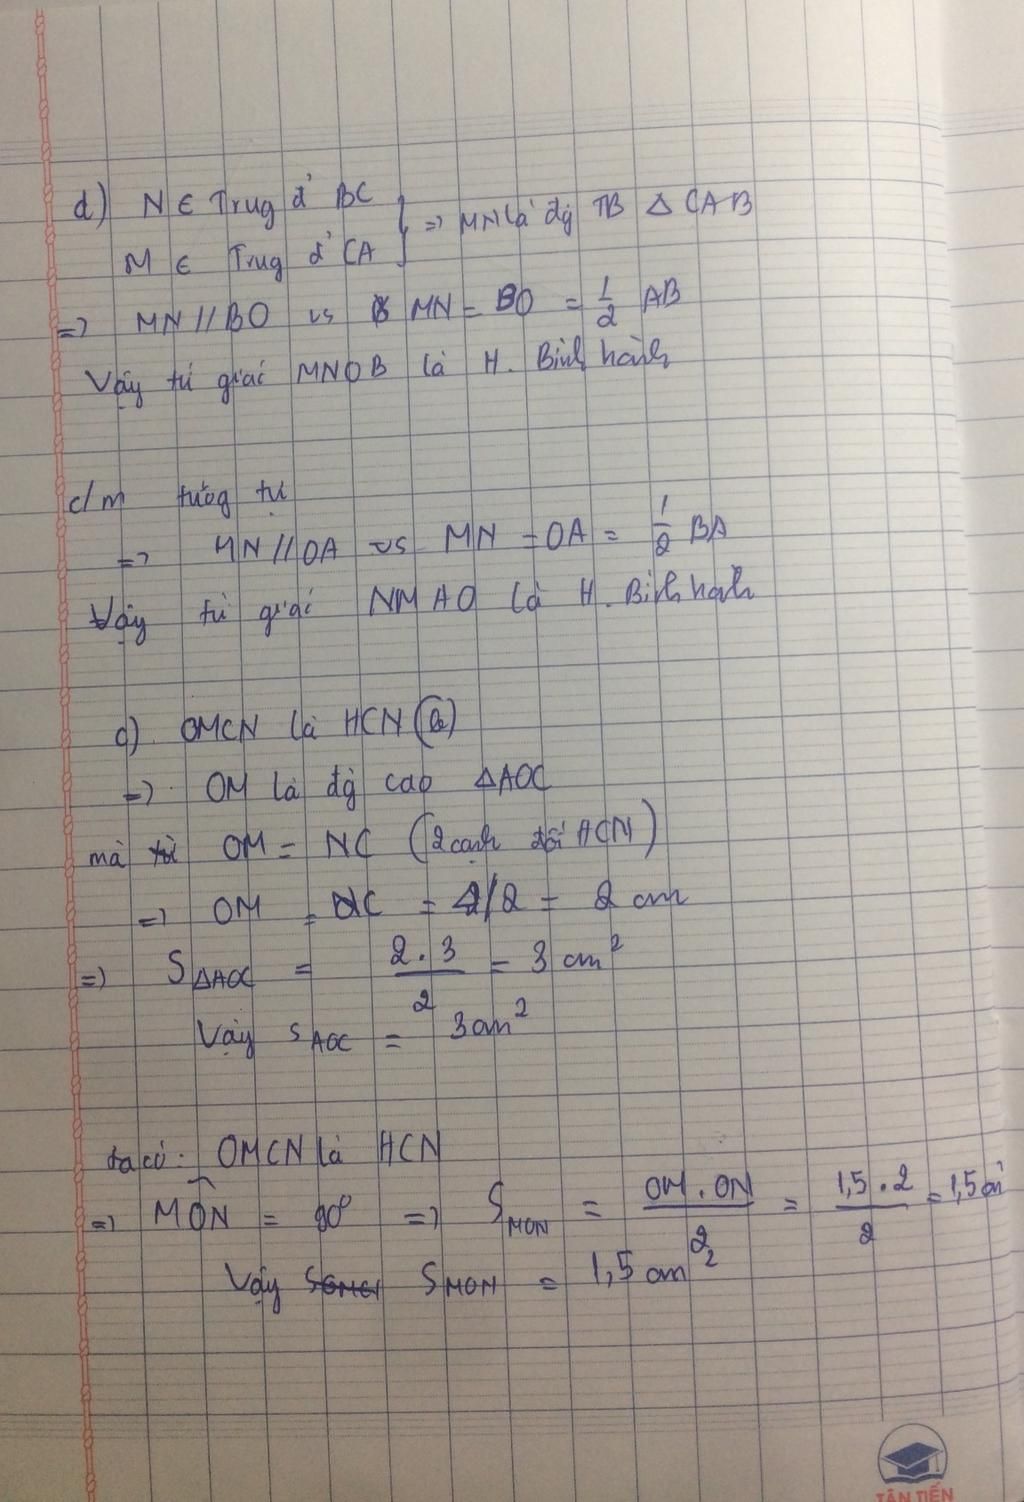 d) N ∈ Trug đ' BC
M ∈ Trug đ' CA } => MN là đg TB △ CAB
=> MN // BO vs MN = BO = 1/2 AB
Vậy tứ giác MNOB là H. Bình hành
c/m tươg tự
=> MN // OA vs MN = OA = 1/2 BA
Vậy tứ giác NMAO là H. Bình hành
c) OMCN là HCN (a)
=> OM là đg cao △AOC
mà OM = NC (2 cạnh đối HCN)
=> OM = NC = 4/2 = 2 cm
=> S△AOC = 2.3/2 = 3 cm²
Vậy SAOC = 3cm²
ta có: OMCN là HCN
=> MÔN = 90° => SMON = OM.ON/2 = 1,5.2/2 = 1,5 cm²
Vậy SMON = 1,5 cm²
TÂN TIẾN